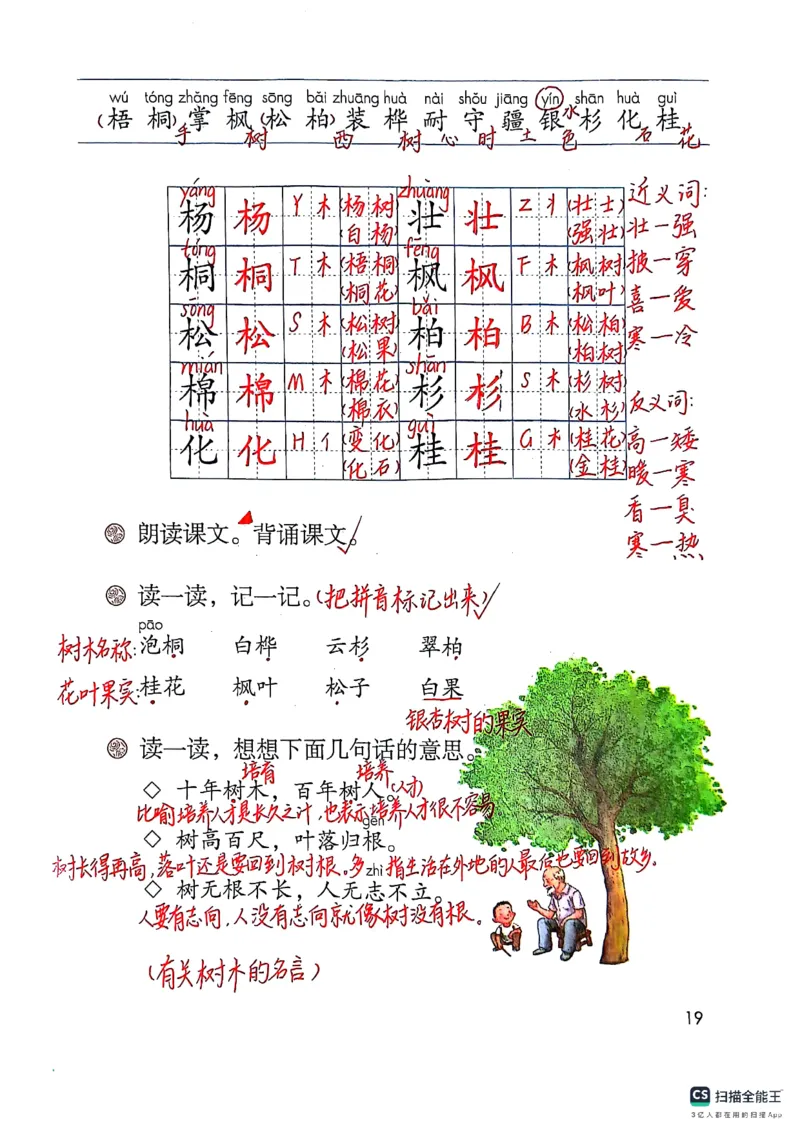 wú tóng zhǎng fēng sōng bǎi zhuāng huà nài shǒu jiāng yín shān huà guì
(梧 桐) 掌 枫 (松 柏) 装 桦 耐 守 疆 银 杉 化 桂
手 树 西 树 心 时 土 水 色 石 花
yáng zhuàng
杨 杨 Y 木 (杨树) (白杨) 壮 壮 Z 丬 (壮士) (强壮)
tóng fēng
桐 桐 T 木 (梧桐) (桐花) 枫 枫 F 木 (枫树) (枫叶)
sōng bǎi
松 松 S 木 (松树) (松果) 柏 柏 B 木 (松柏) (柏树)
mián shān
棉 棉 M 木 (棉花) (棉衣) 杉 杉 S 木 (杉树) (水杉)
huà guì
化 化 H 亻 (变化) (化石) 桂 桂 G 木 (桂花) (金桂)
近义词:
壮—强
披—穿
喜—爱
寒—冷
反义词:
高—矮
暖—寒
香—臭
寒—热
朗读课文。背诵课文。
读一读,记一记。(把拼音标记出来)
pāo
树木名称:泡桐 白桦 云杉 翠柏
花叶果实:桂花 枫叶 松子 白果
银杏树的果实
读一读,想想下面几句话的意思。
培育 培养
◇ 十年树木,百年树人。(人才)
比喻培养人才是长久之计,也表示培养人才很不容易
gēn
◇ 树高百尺,叶落归根。
树长得再高,落叶还是要回到树根。多指生活在外地的人最后也要回到故乡.
zhì
◇ 树无根不长,人无志不立。
人要有志向,人没有志向就像树没有根。
(有关树木的名言)
19
CS 扫描全能王
3亿人都在用的扫描App